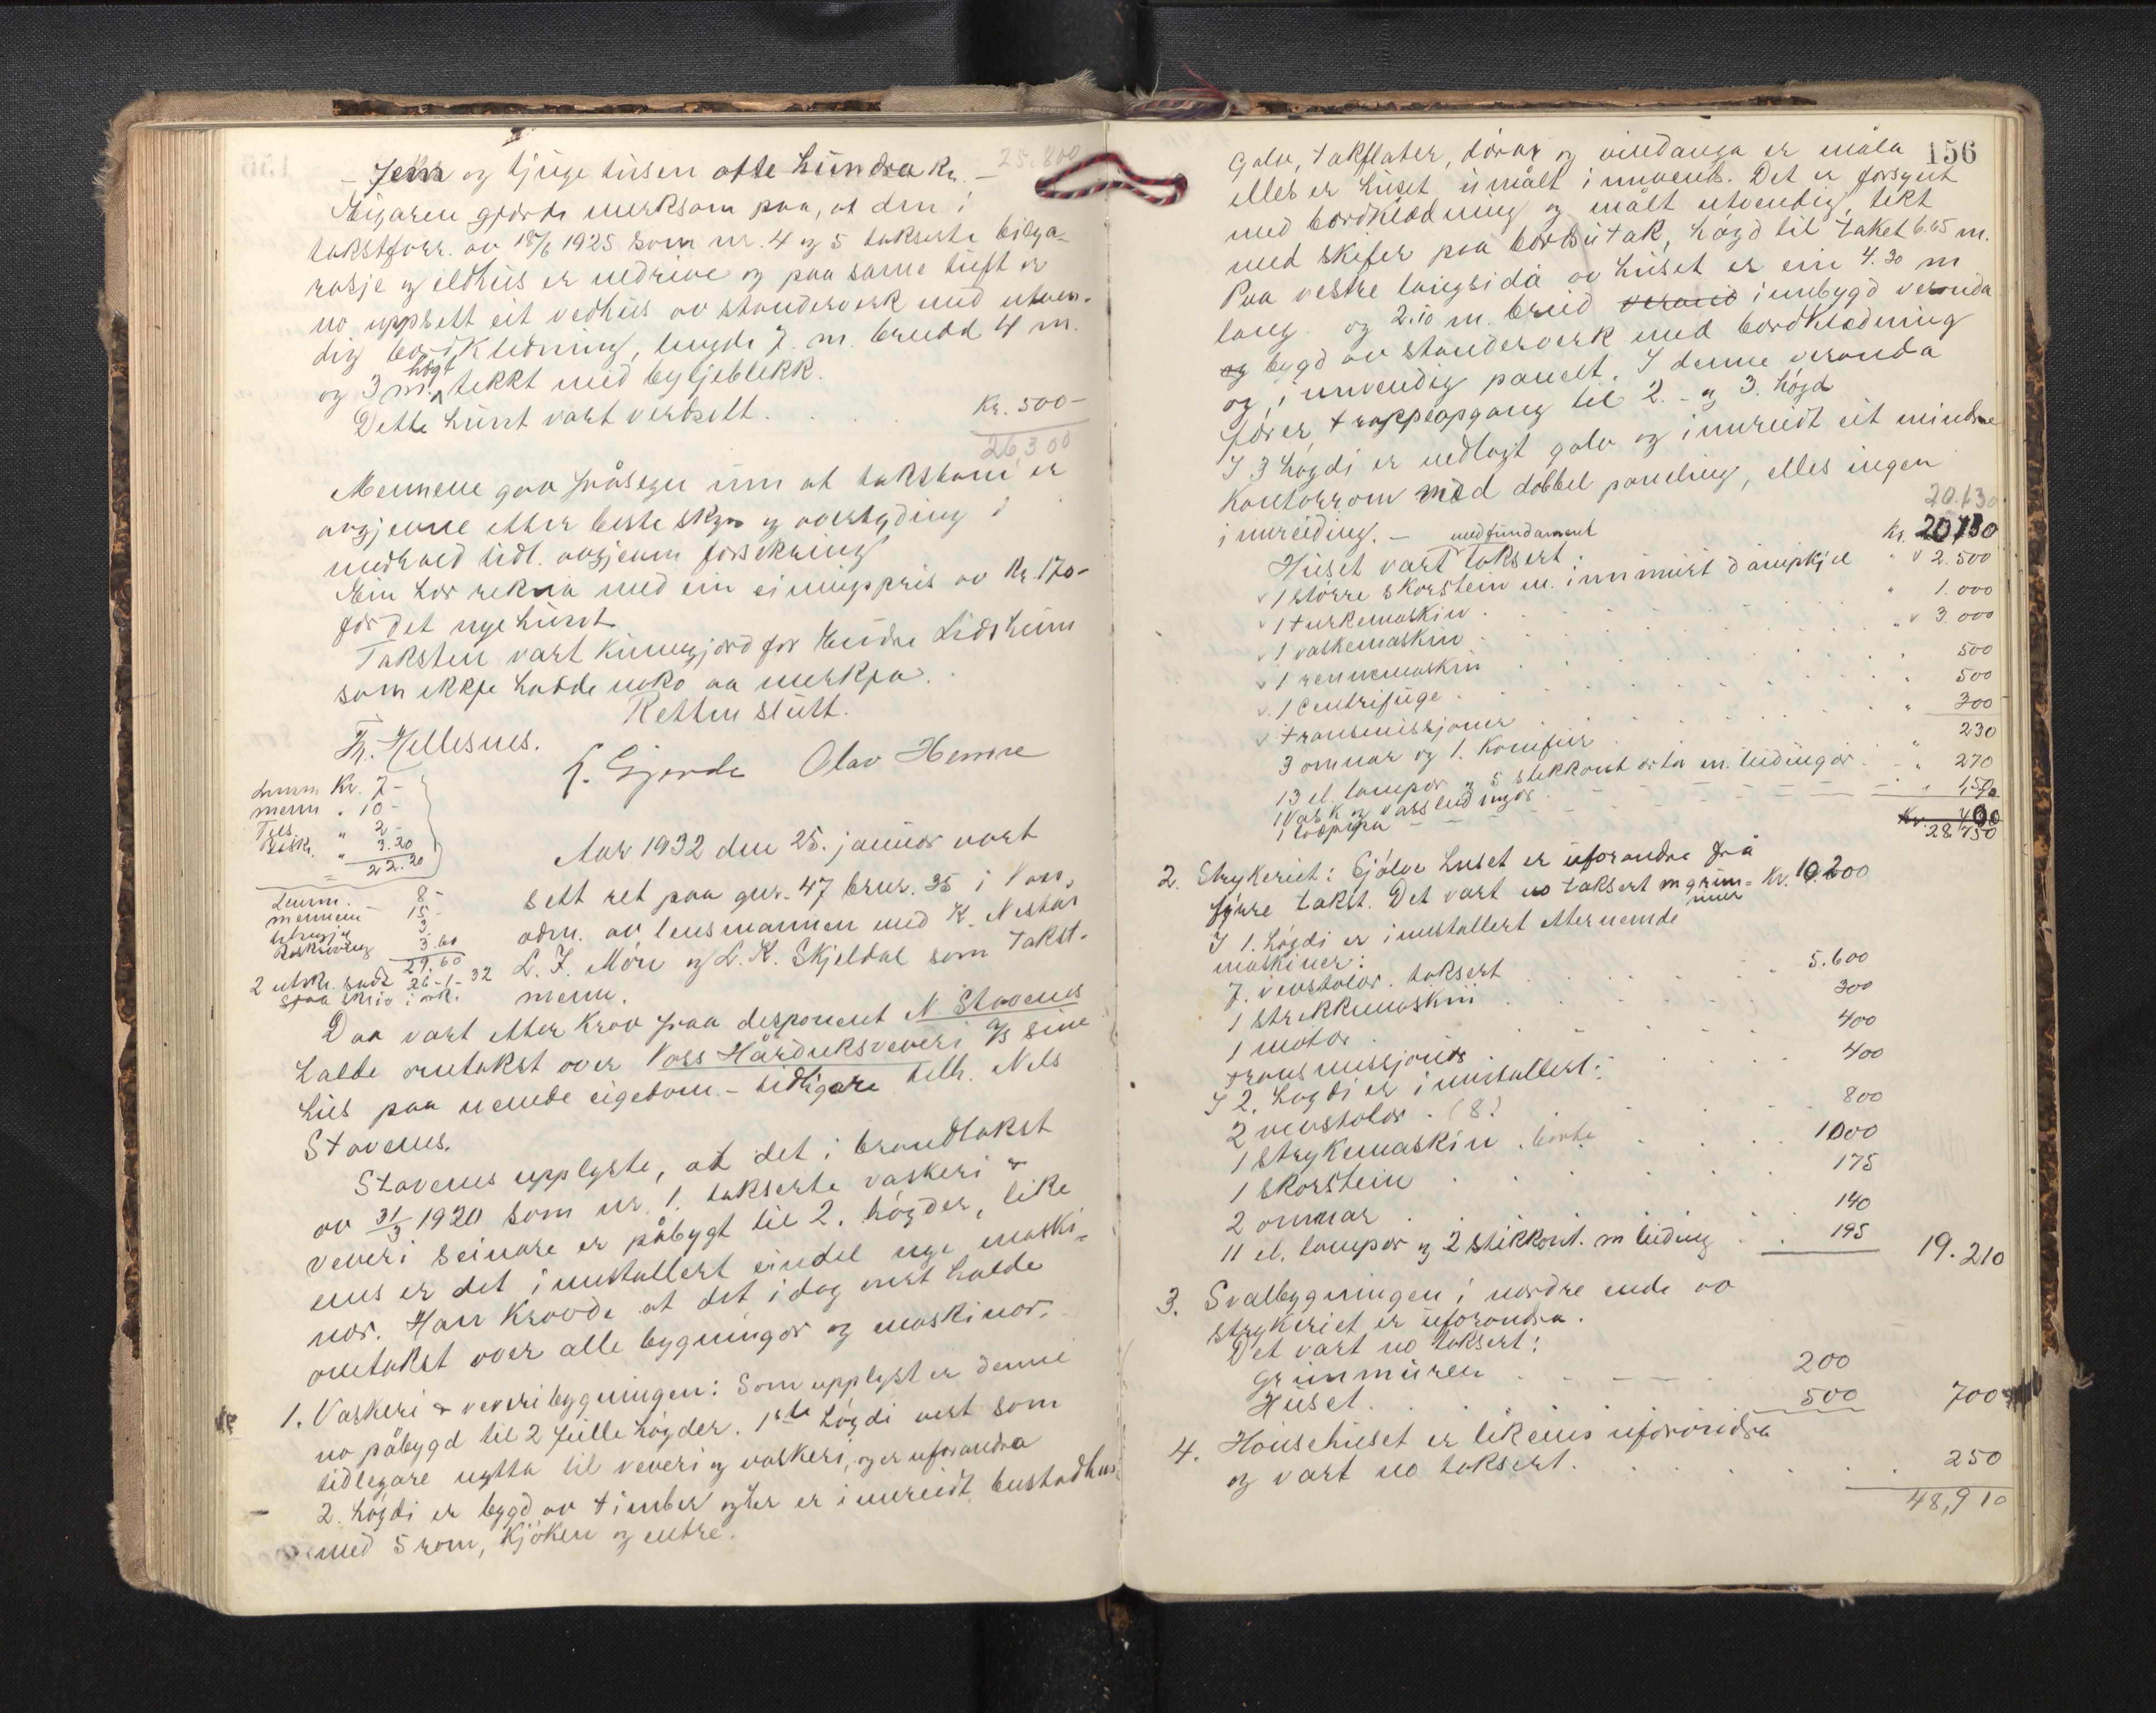 - Fem og tjuge tusen otte hundra kr. - 25.800
Eigaren gjorde merksam paa, at den i
takstforr. av 18/6 1925 som nr. 4 og 5 takserte bilga-
rasje og eldhus er nedrive og paa same tuft er
no uppsett eit vedhus av standerverk med utven-
dig bordkledning, lengde 7. m. breidd 4 m.
og 3 m. høgt tekkt med bylgjeblekk.
Dette huset vart verdsett . . . Kr. 500-
26,300
Mennene gav fråsegn um at taksterne er
avgjevne etter beste skyn og overtyding i
medhald tidl. avgjevne forsikring
Ein har rekna med ein einingspris av Kr. 170-
for det nye huset
Taksten vart kunngjord for Eindre Lidsheim
som ikkje hadde noko aa merkja.
Retten slutt.
Th. Hellesnes.
K. Gjerde Olav Hemre
Lensm Kr. 7-
menn " 10-
Tils. " 2-
Beskr. " 3.20
= 22.20
Aar 1932 den 25. januar vart
sett ret paa gnr. 47 brnr. 35 i Voss,
adm. av lensmannen med K. Nestås
L. J. Møn og L. K. Skjeldal som takst-
menn.
Lensm. 8-
mennene - 15-
3
Beskriving 3.60
29.60
2 utskr. sendt 26-1-32
Daa vart etter krav fraa disponent N. Stavenes
halde omtakst over Voss Hårduksveveri A/S sine
hus paa nemnde eigedom - tidligare tilh. Nils
Stavenes.
Stavenes upplyste, at det i brandtakst
av 31/3 1920 som nr. 1. takserte vaskeri &
veveri seinare er påbygt til 2. høgder, like
eins er det innstallert eindel nye maski-
nor. Han kravde at det i dag vert halde
omtakst over alle bygningar og maskinor.
1. Vaskeri & veveribygningen: Som upplyst er denne
no påbygd til 2 fulle høgder. 1ste høgdi vert som
tidlegare nytta til veveri og vaskeri, og er uforandra
- 2. høgdi er bygd av timber og her er innreidt bustadhus
med 5 rom, kjøken og entre.
156
Golv, takflater, dører og vindauga er måla
elles er huset umålt innvends. Det er forsynt
med bordklædning og målt utvendig, tekt
med skifer paa bordsutak, høgd til taket 6.65 m.
Paa vestre langsida av huset er ein 4.30 m
lang og 2.10 m. breid verand innbygd veranda
og bygd av standerverk med bordklædning
og innvendig panelt. I denne veranda
fører trappeopgang til 2. - og 3. høgd
I 3 høgdi er nedlagt golv og innreidt eit mindre
kontorrom med dobbel paneling, elles ingen
innreiding. - 20.130
Huset vart taksert med fundament Kr. 20130
v 1 større skorstein m. innmurt dampkjel " v 2.500
v 1 turkemaskin . " 1.000
v 1 vaskemaskin " v 3.000
v 1 rennemaskin " 500
v 1 centrifuge . " 500
v transmisjoner " 300
3 omnar og 1. komfur " 230
13 el. lampor og 5 stikkontakter m. leidingar . - " 270
1 vask og vassleidingar " 150
1 Kr. 400
28.750
2. Strykeriet: Sjølve huset er uforandra frå
fyrre takst. Det vart no taksert m grun= Kr. 10.200
muer
I 1. høgdi er innstallert etternemnde
maskiner:
7. vevstolar. taksert " 5.600
1 strekkemaskin 300
1 motor 400
transmisjoner 400
I 2. høgdi er innstallert:
2 vevstolar . (8) 800
1 strykemaskin . borte 1000
1 skorstein 175
2 omnar 140
11 el. lampor og 2 stikkont. m leiding 195 19.210
3. Svalbygningen i nordre ende av
strykeriet er uforandra.
Det vart no taksert:
Grunmuren 200
Huset . 500 700
4. Hønsehuset er likeins uforandra
og vart no taksert. 250
48,910